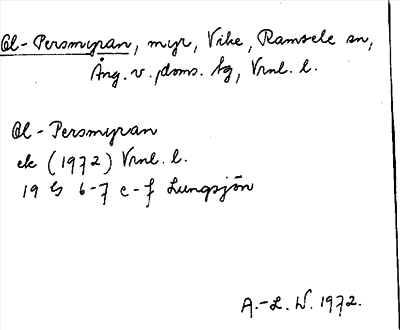 Ol-Persmyran, myr, Vike, Ramsele sn,
Ång. v. doms. tg, Vrnl. l.
Ol-Persmyran
ek (1972) Vrnl. l.
19 G 6-7 e-f Lungsjön
A.-L. W. 1972.